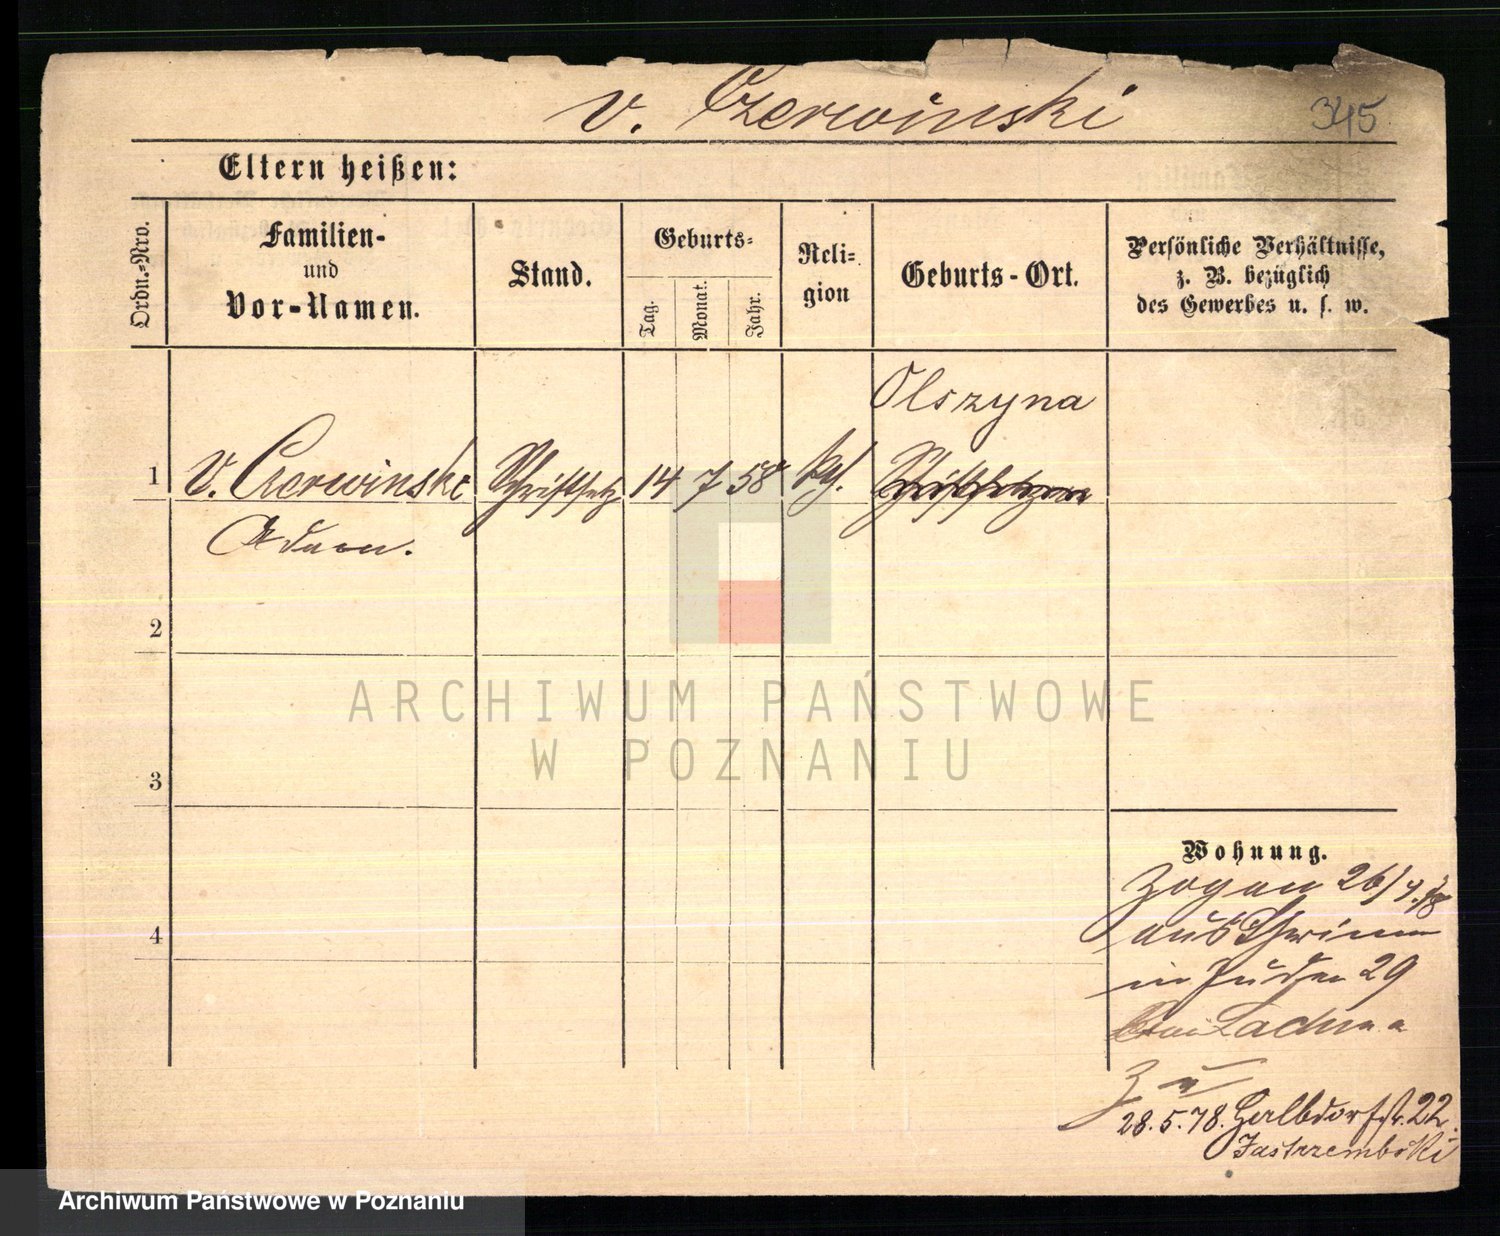 v. Czerwinski
345
Eltern heißen:
Ordn.-Nro.
Familien-
und
Vor-Namen.
Stand.
Geburts-
Tag.
Monat.
Jahr.
Reli-
gion
Geburts-Ort.
Persönliche Verhältnisse,
z. B. bezüglich
des Gewerbes u. s. w.
Olszyna
1 v. Czerwinski Schriftsetz 14 7 58 kth.
Adam.
2
3
4
Wohnung.
Zogen 26/4.78
aus Schrimm
in Juden 29
bei
Zu
28.5.78. Halbdorfstr. 22.
Jastrzembski
ARCHIWUM PAŃSTWOWE
W POZNANIU
Archiwum Państwowe w Poznaniu